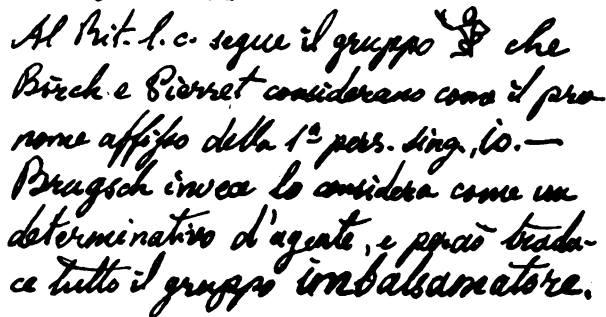 Al Rit. l. c. segue il gruppo 𓀁 che
Birch e Pierret considerano come il pro
nome affisso della 1ª pers. sing., io. —
Brugsch invece lo considera come un
determinativo d'agente, e perciò tradu-
ce tutto il gruppo imbalsamatore.